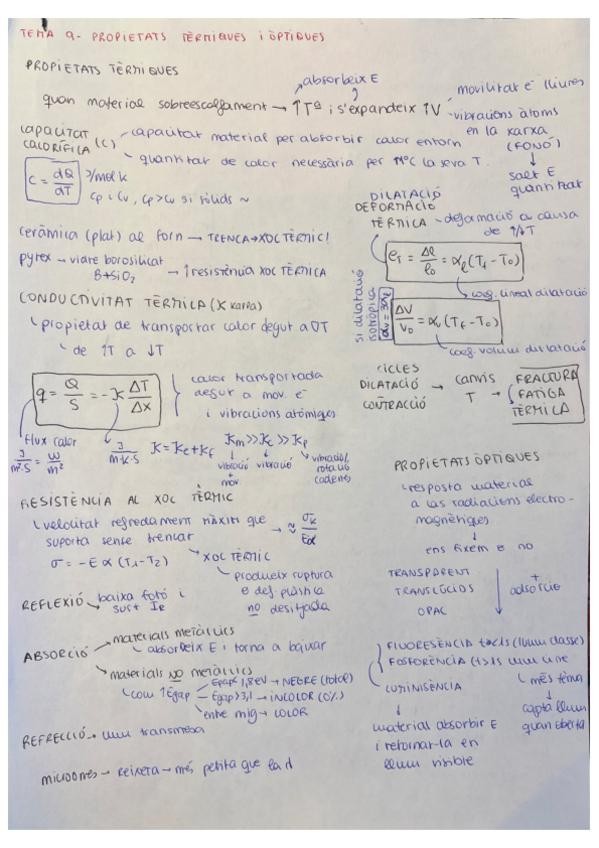 TEMA 9- PROPIETATS TÈRMIQUES I ÒPTIQUES
PROPIETATS TÈRMIQUES
absorbeix E
quan material sobreescalfament → ↑Tª i s'expandeix ↑V
movilitat e⁻ lliures
vibracions àtoms
en la xarxa
(FONÓ)
↓
salt E
quantitzat
CAPACITAT
CALORÍFICA (C)
capacitat material per absorbir calor entorn
quantitat de calor necessària per ↑1ºC la seva T.
C = dQ/dT
J/mol k
Cp i Cv, Cp>Cv si sòlids ~
ceràmica (plat) al forn → TRENCA → XOC TÈRMIC!
pyrex → vidre borosilicat
B+SiO₂
→ ↑resistència XOC TÈRMICA
CONDUCTIVITAT TÈRMICA (K kappa)
propietat de transportar calor degut a ΔT
de ↑T a ↓T
q = Q/S = -K ΔT/Δx
calor transportada
degut a mov. e⁻
i vibracions atòmiques
flux calor
J/m²·S = W/m²
J/m·K·S
K = Ke + Kf
Km >> Kc >> Kp
vibració
+
mov
vibració
vibració,
rotació
cadenes
RESISTÈNCIA AL XOC TÈRMIC
velocitat refredament màxim que
suporta sense trencar
→ ≈ σk/Eα
σ = -E α (T₁-T₂)
XOC TÈRMIC
produeix ruptura
o def. plàstica
no desitjada
REFLEXIÓ → baixa fotó i
surt Ie
ABSORCIÓ
materials METÀL·LICS
absorbeix E i torna a baixar
materials NO METÀL·LICS
com ↑Egap
Egap<1,8eV → NEGRE (total)
Egap>3,1 → INCOLOR (0%)
entre mig → COLOR
REFRECCIÓ → llum transmesa
microones → reixeta → més petita que la d
DILATACIÓ
DEFORMACIÓ
TÈRMICA - deformació a causa
de ↑/↓T
eT = Δl/l₀ = αl (Tf - T₀)
coef. lineal dilatació
si dilatació
isotròpica
αv = 3αl
ΔV/V₀ = αv (Tf - T₀)
coef. volum dilatació
CICLES
DILATACIÓ
CONTRACCIÓ
→ canvis
T
→ FRACTURA
FATIGA
TÈRMICA
PROPIETATS ÒPTIQUES
resposta material
a les radiacions electro-
magnètiques
↓
ens fixem e⁻ no
TRANSPARENT
TRANSLÚCIDS
OPAC
+
adsorció
FLUORESÈNCIA
FOSFORÈNCIA
més temps
↓
capta llum
quan oberta
LUMINISÈNCIA
↓
material absorbir E
i retornar-la en
llum visible